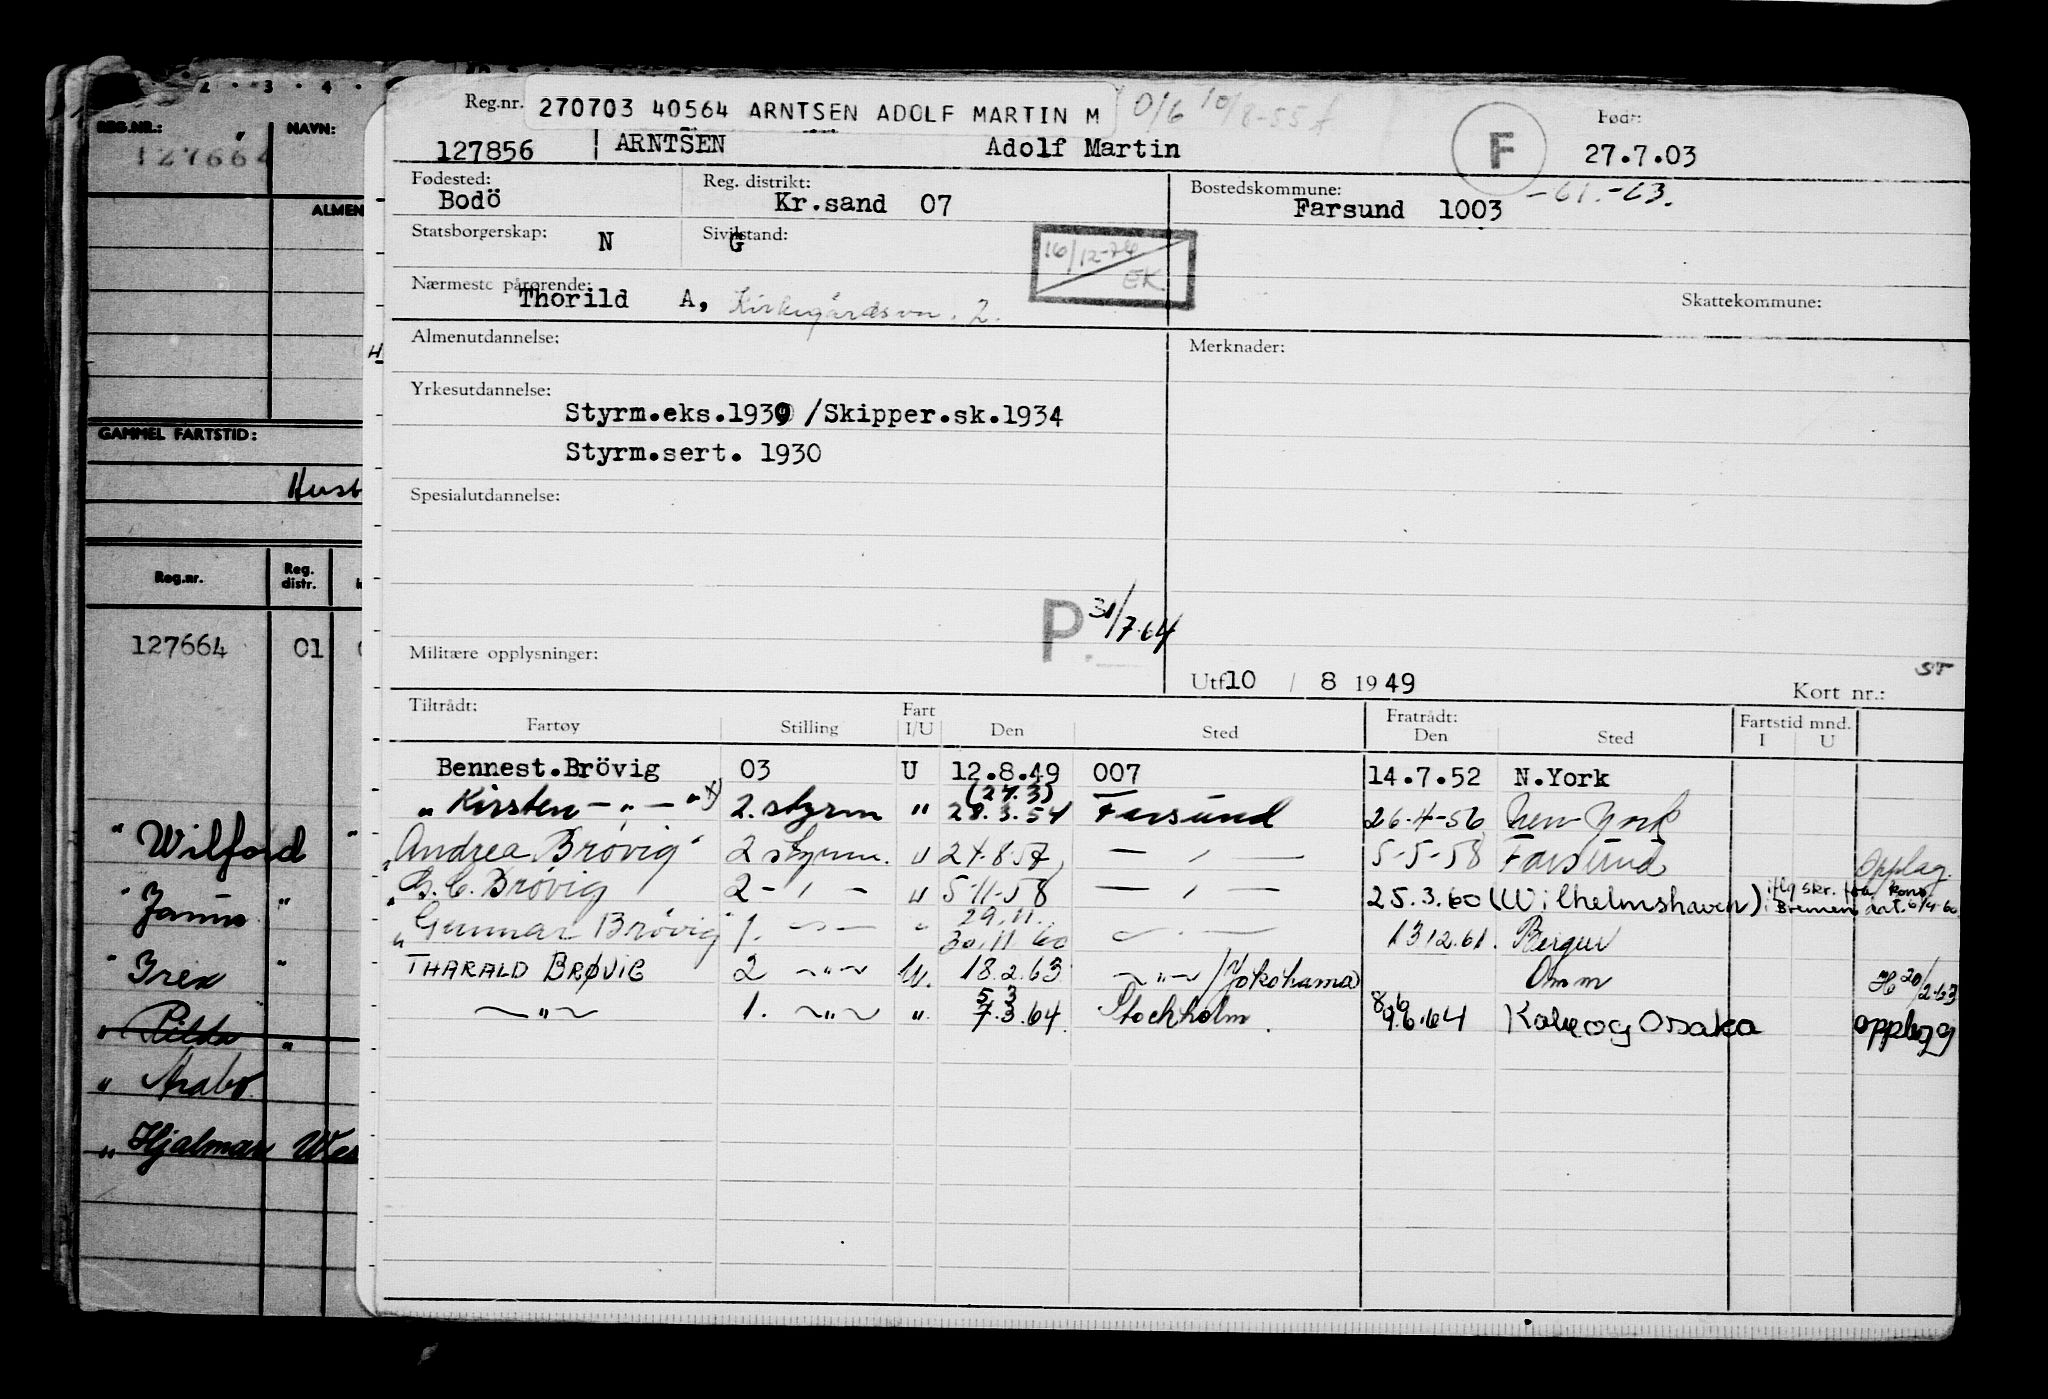 2 · 3 · 4 ·
REG.NR.: NAVN:
127664
ALMEN
GAMMEL FARTSTID:
Reg.nr. Reg. distr.
127664 01
" Wilford "
" Janus "
" Irex "
" Pilda "
" Arabo
" Hjalmar Wes
Reg.nr. 270703 40564 ARNTSEN ADOLF MARTIN M 0/6 10/8-55 F Født:
127856 ARNTSEN Adolf Martin 27.7.03
Fødested: Reg. distrikt: Bostedskommune: -61.-63.
Bodö Kr.sand 07 Farsund 1003
Statsborgerskap: N Sivilstand: G
16/12-76 EK
Nærmeste pårørende: Skattekommune:
Thorild A, Kirkegårdsvn. 2.
Almenutdannelse: Merknader:
Yrkesutdannelse:
Styrm.eks.1930 /Skipper.sk.1934
Styrm.sert. 1930
Spesialutdannelse:
P. 31/7.64
Militære opplysninger:
Utf 10 / 8 1949 Kort nr.: ST
Tiltrådt: Fratrådt: Fartstid mnd.
Fartøy Stilling Fart I/U Den Sted Den Sted I U
Bennest.Brövig 03 U 12.8.49 007 14.7.52 N.York
(27.3)
" Kirsten - " - " x) 2. styrm " 28.3.54 Farsund 26-4-56 New York
"Andrea Brøvig" 2 styrm. " 27.8.57 — " — 5-5-58 Farsund opplag.
"G.C. Brøvig 2 - " - " 5-11-58 — " — 25.3.60 (Wilhelmshaven) iflg skr. fra kons. i Bremen dat. 6/4-60
29.11.
"Gunnar Brøvig" 1. - " - " 30.11.60 — " — 13.12.61. Bergen
THARALD BRØVIG 2 - " - U. 18.2.63 - " - /Yokohama Omm H 20/2-63
5 3 8.6
- " - 1. - " - ". 7.3.64. Stockholm. 9.6.64 Kobe og Osaka opplegg